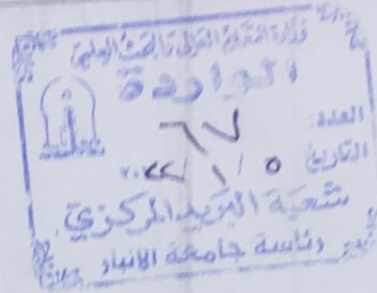 وزارة التعليم العالي والبحث العلمي
الواردة
العدد: ٦٧
التاريخ ٥ / ١ / ٢٠٢٢
شعبة البريد المركزي
رئاسة جامعة الانبار